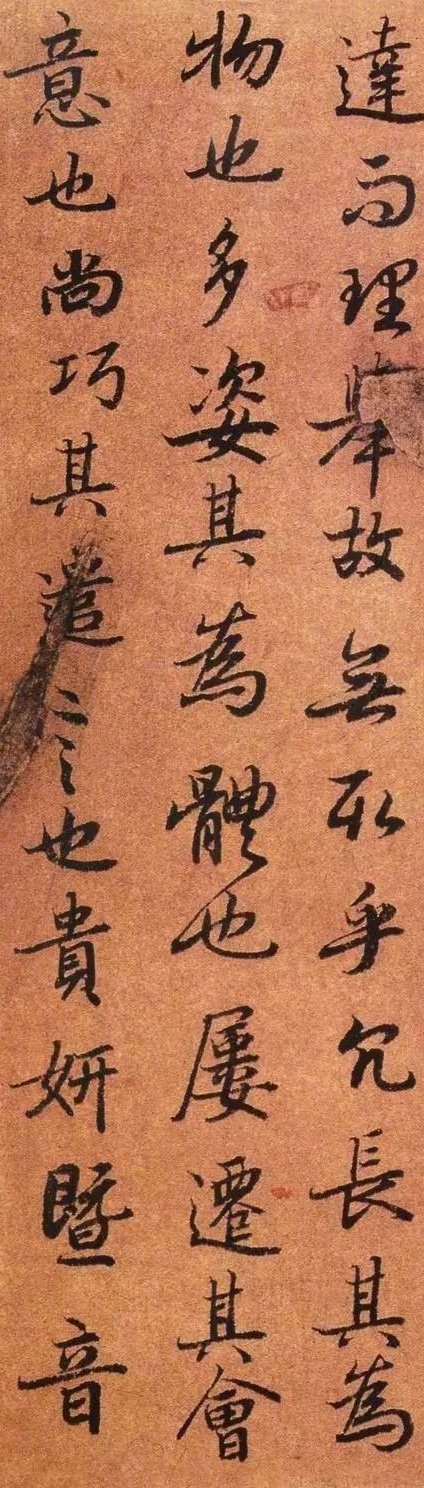 達而理舉故無取乎冗長其為
物也多姿其為體也屢遷其會
意也尚巧其遣言也貴妍暨音